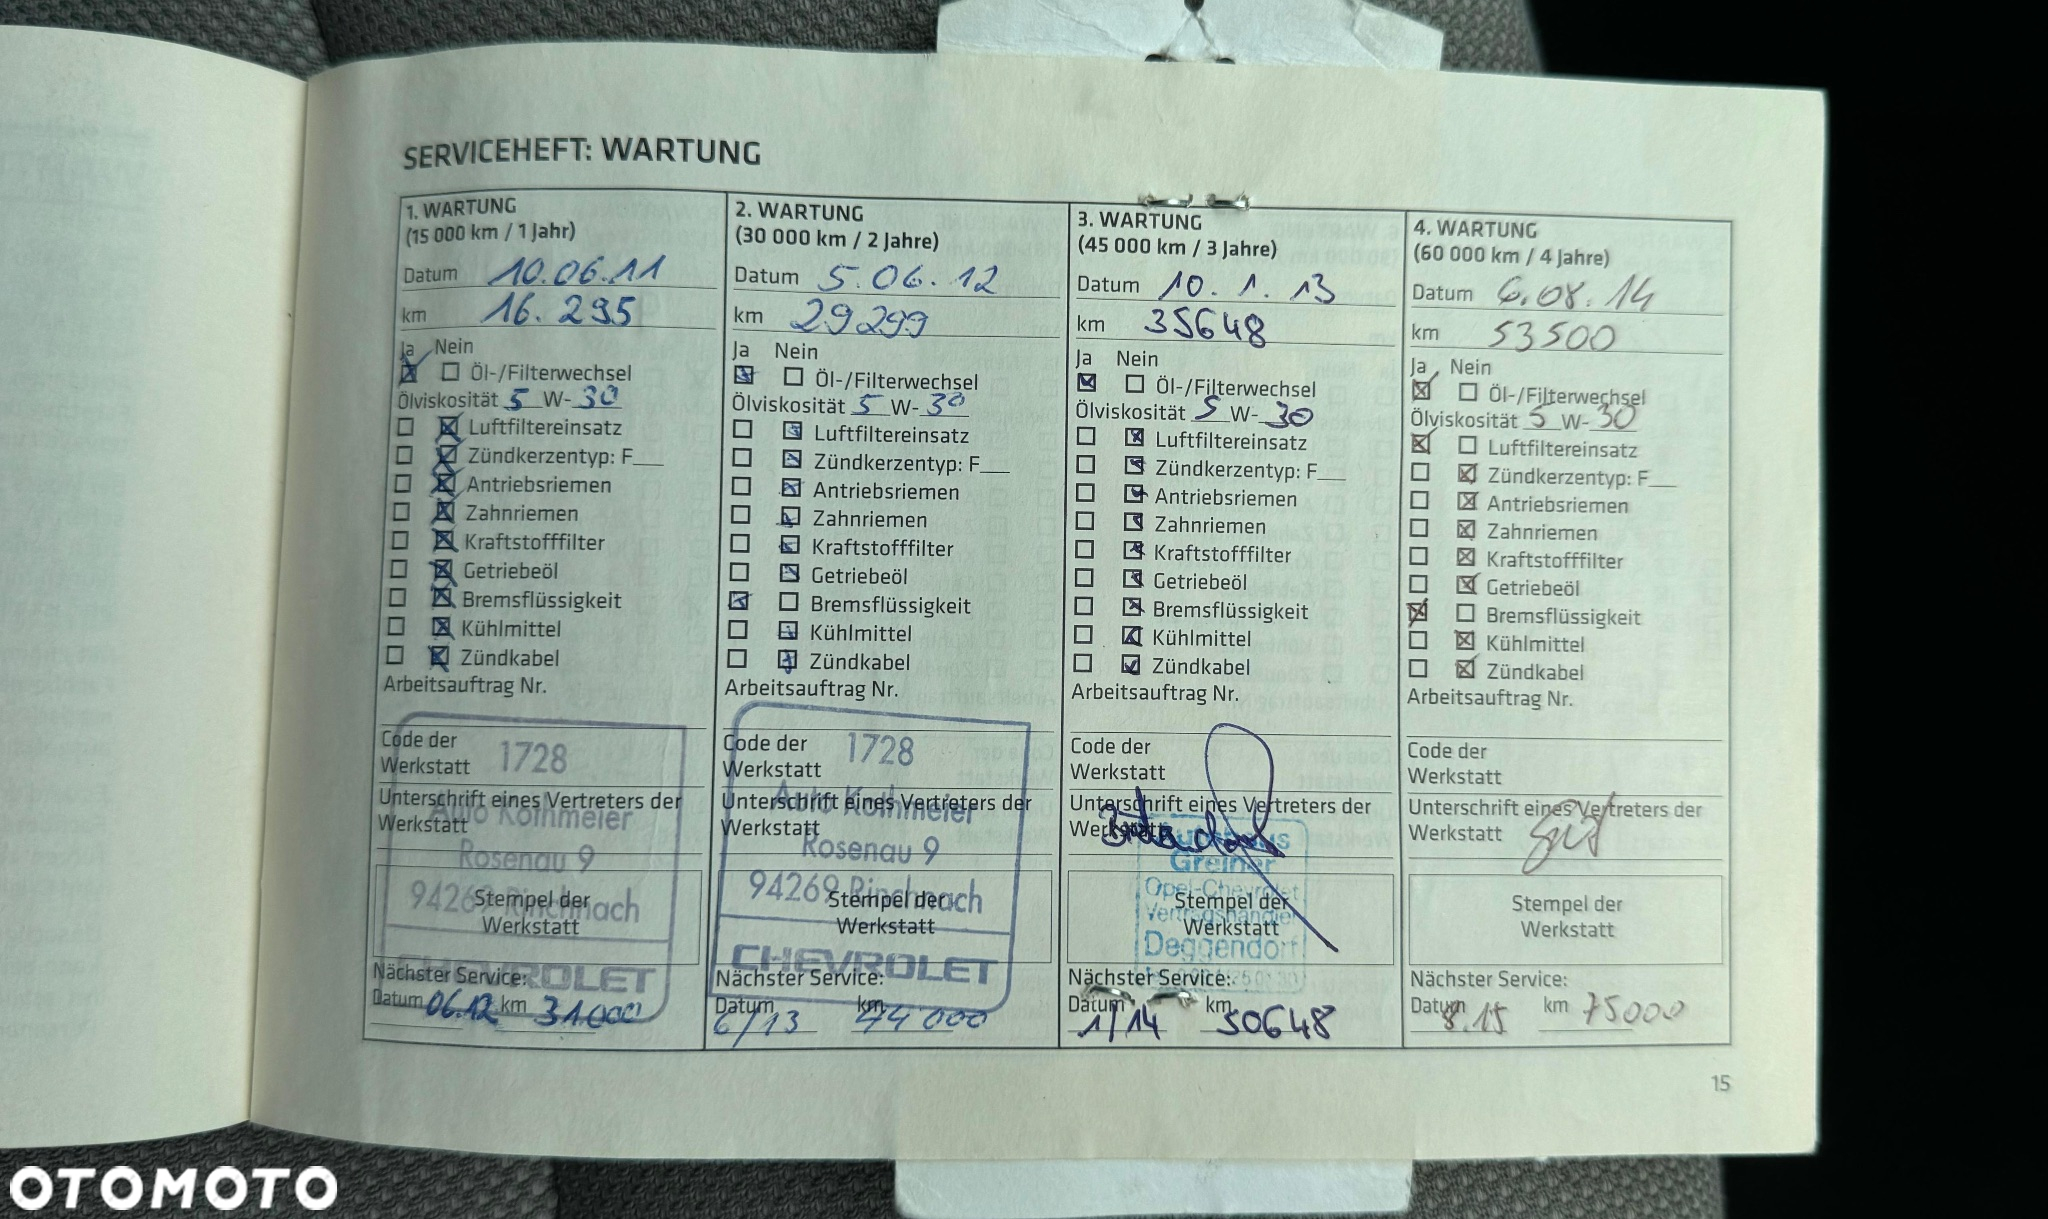 SERVICEHEFT: WARTUNG
1. WARTUNG
(15 000 km / 1 Jahr)
Datum 10.06.11
km 16.295
Ja Nein
Öl-/Filterwechsel
Ölviskosität 5 W- 30
Luftfiltereinsatz
Zündkerzentyp: F__
Antriebsriemen
Zahnriemen
Kraftstofffilter
Getriebeöl
Bremsflüssigkeit
Kühlmittel
Zündkabel
Arbeitsauftrag Nr.
Code der
Werkstatt
1728
Unterschrift eines Vertreters der
Werkstatt
Auto Kothmeier
Rosenau 9
94269 Rinchnach
Stempel der
Werkstatt
CHEVROLET
Nächster Service:
Datum 06.12 km 31.000
2. WARTUNG
(30 000 km / 2 Jahre)
Datum 5.06.12
km 29299
Ja Nein
Öl-/Filterwechsel
Ölviskosität 5 W- 30
Luftfiltereinsatz
Zündkerzentyp: F__
Antriebsriemen
Zahnriemen
Kraftstofffilter
Getriebeöl
Bremsflüssigkeit
Kühlmittel
Zündkabel
Arbeitsauftrag Nr.
Code der
Werkstatt
1728
Unterschrift eines Vertreters der
Werkstatt
Auto Kothmeier
Rosenau 9
94269 Rinchnach
Stempel der
Werkstatt
CHEVROLET
Nächster Service:
Datum 6/13 km 44 000
3. WARTUNG
(45 000 km / 3 Jahre)
Datum 10.1.13
km 35648
Ja Nein
Öl-/Filterwechsel
Ölviskosität 5 W- 30
Luftfiltereinsatz
Zündkerzentyp: F__
Antriebsriemen
Zahnriemen
Kraftstofffilter
Getriebeöl
Bremsflüssigkeit
Kühlmittel
Zündkabel
Arbeitsauftrag Nr.
Code der
Werkstatt
Unterschrift eines Vertreters der
Werkstatt
Autohaus
Greiner
Opel-Chevrolet
Vertragshändler
Deggendorf
Stempel der
Werkstatt
Nächster Service:
Datum 1/14 km 50648
4. WARTUNG
(60 000 km / 4 Jahre)
Datum 6.08.14
km 53500
Ja Nein
Öl-/Filterwechsel
Ölviskosität 5 W- 30
Luftfiltereinsatz
Zündkerzentyp: F__
Antriebsriemen
Zahnriemen
Kraftstofffilter
Getriebeöl
Bremsflüssigkeit
Kühlmittel
Zündkabel
Arbeitsauftrag Nr.
Code der
Werkstatt
Unterschrift eines Vertreters der
Werkstatt
Stempel der
Werkstatt
Nächster Service:
Datum 8.15 km 75000
15
OTOMOTO